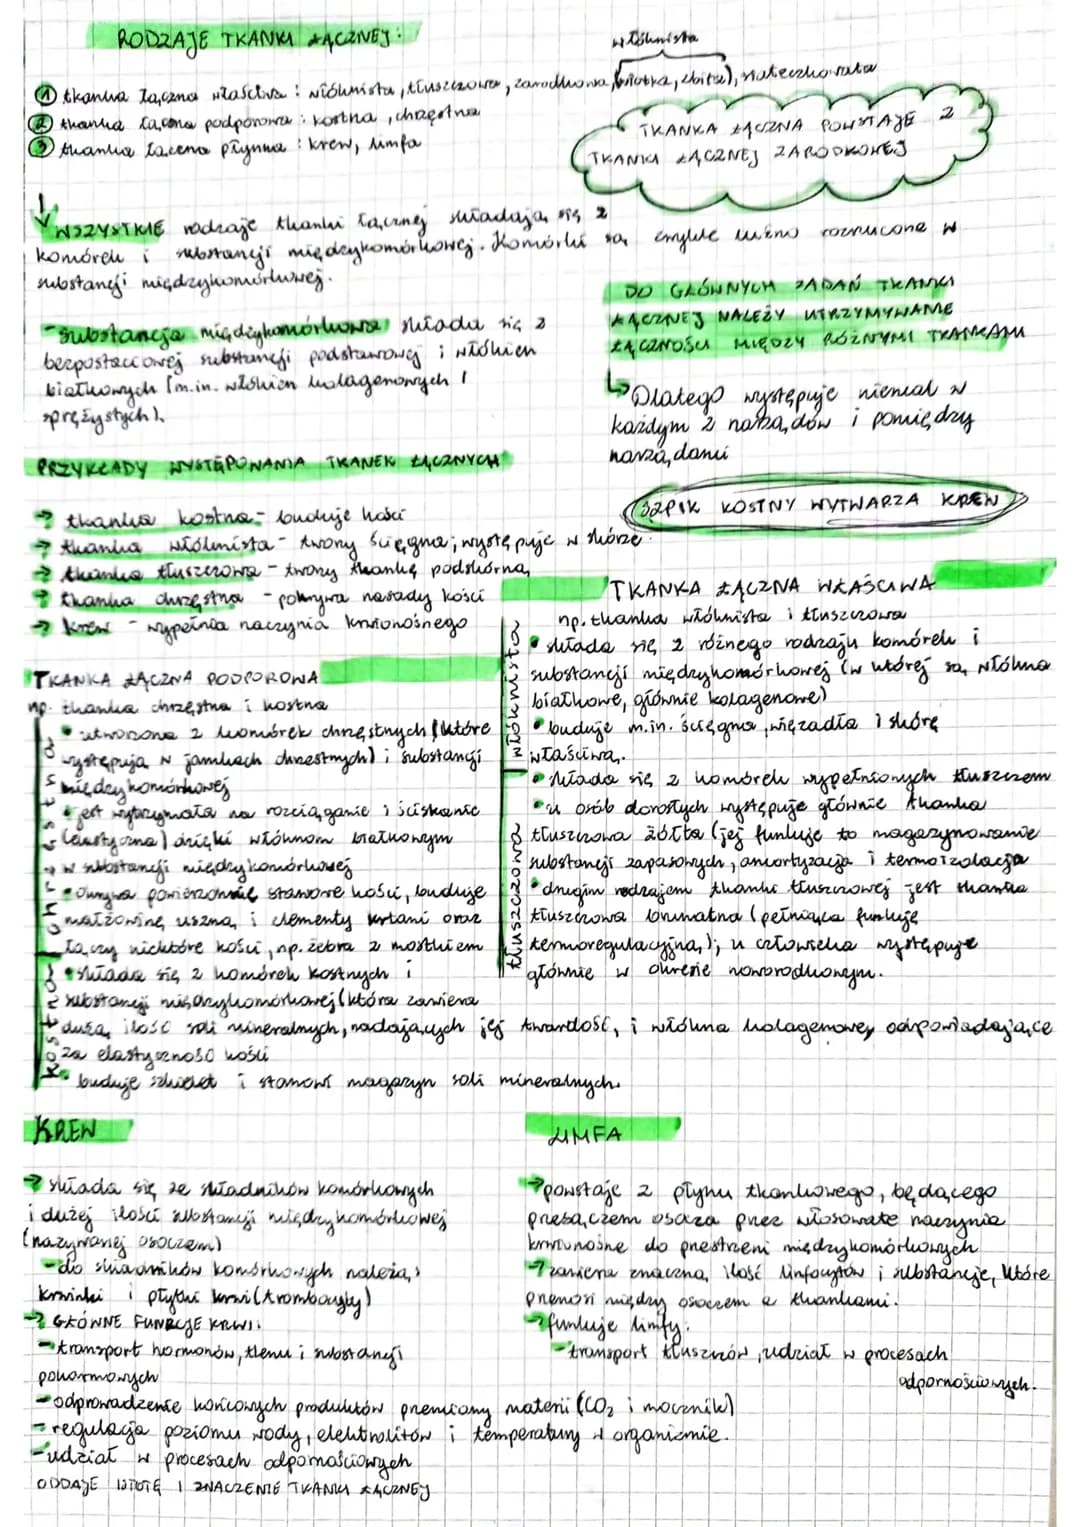 RODZAJE TKANKI ŁĄCZNEJ:
włóknista
① tkanka łączna właściwa: włóknista, tłuszczowa, zarodkowa, (wiotka, zbita), siateczkowata
② tkanka łączna podporowa: kostna, chrzęstna
③ tkanka łączna płynna: krew, limfa
TKANKA ŁĄCZNA POWSTAJE Z
TKANKI ŁĄCZNEJ ZARODKOWEJ
WSZYSTKIE rodzaje tkanki łącznej składają się z
komórek i substancji międzykomórkowej. Komórki są zwykle luźno rozrzucone w
substancji międzykomórkowej.
- substancja międzykomórkowa składa się z
bezpostaciowej substancji podstawowej i włókien
białkowych (m.in. włókien kolagenowych i
sprężystych).
DO GŁÓWNYCH ZADAŃ TKANKI
ŁĄCZNEJ NALEŻY UTRZYMYWANIE
ŁĄCZNOŚCI MIĘDZY RÓŻNYMI TKANKAMI
↳ Dlatego występuje niemal w
każdym z narządów i pomiędzy
narządami
PRZYKŁADY WYSTĘPOWANIA TKANEK ŁĄCZNYCH
SZPIK KOSTNY WYTWARZA KREW
→ tkanka kostna - buduje kości
→ tkanka włóknista - tworzy ścięgna; występuje w skórze
→ tkanka tłuszczowa - tworzy tkankę podskórną
→ tkanka chrzęstna - pokrywa nasady kości
→ krew - wypełnia naczynia krwionośnego
TKANKA ŁĄCZNA PODPOROWA
np. tkanka chrzęstna i kostna
chrzęstna
• utworzona z komórek chrzęstnych (które
występują w jamkach chrzęstnych) i substancji
międzykomórkowej
• jest wytrzymała na rozciąganie i ściskanie
(elastyczna) dzięki włóknom białkowym
w substancji międzykomórkowej
• okrywa powierzchnie stawowe kości, buduje
małżowinę uszną, i elementy krtani oraz
łączy niektóre kości, np. żebra z mostkiem
kostna
• składa się z komórek kostnych i
substancji międzykomórkowej (która zawiera
dużą ilość soli mineralnych, nadających jej twardość, i włókna kolagenowe, odpowiadające
za elastyczność kości
• buduje szkielet i stanowi magazyn soli mineralnych.
TKANKA ŁĄCZNA WŁAŚCIWA
np. tkanka włóknista i tłuszczowa
włóknista
• składa się z różnego rodzaju komórek i
substancji międzykomórkowej (w której są włókna
białkowe, głównie kolagenowe)
• buduje m.in. ścięgna, więzadła i skórę
właściwą.
tłuszczowa
• składa się z komórek wypełnionych tłuszczem
• u osób dorosłych występuje głównie tkanka
tłuszczowa żółta (jej funkcje to magazynowanie
substancji zapasowych, amortyzacja i termoizolacja
• drugim rodzajem tkanki tłuszczowej jest tkanka
tłuszczowa brunatna (pełniąca funkcję
termoregulacyjną,); u człowieka występuje
głównie w okresie noworodkowym.
KREW
→ składa się ze składników komórkowych
i dużej ilości substancji międzykomórkowej
(nazywanej osoczem)
- do składników komórkowych należą,
krwinki i płytki krwi (trombocyty)
→ GŁÓWNE FUNKCJE KRWI:
- transport hormonów, tlenu i substancji
pokarmowych
- odprowadzenie końcowych produktów przemiany materii (CO₂ i mocznik)
- regulacja poziomu wody, elektrolitów i temperatury w organizmie.
- udział w procesach odpornościowych
ODDAJE ISTOTĘ I ZNACZENIE TKANKI ŁĄCZNEJ
LIMFA
→ powstaje z płynu tkankowego, będącego
przesączem osocza przez włosowate naczynia
krwionośne do przestrzeni międzykomórkowych
→ zawiera znaczną ilość limfocytów i substancje, które
przenosi między osoczem a tkankami.
→ funkcje limfy:
- transport tłuszczów, udział w procesach
odpornościowych.